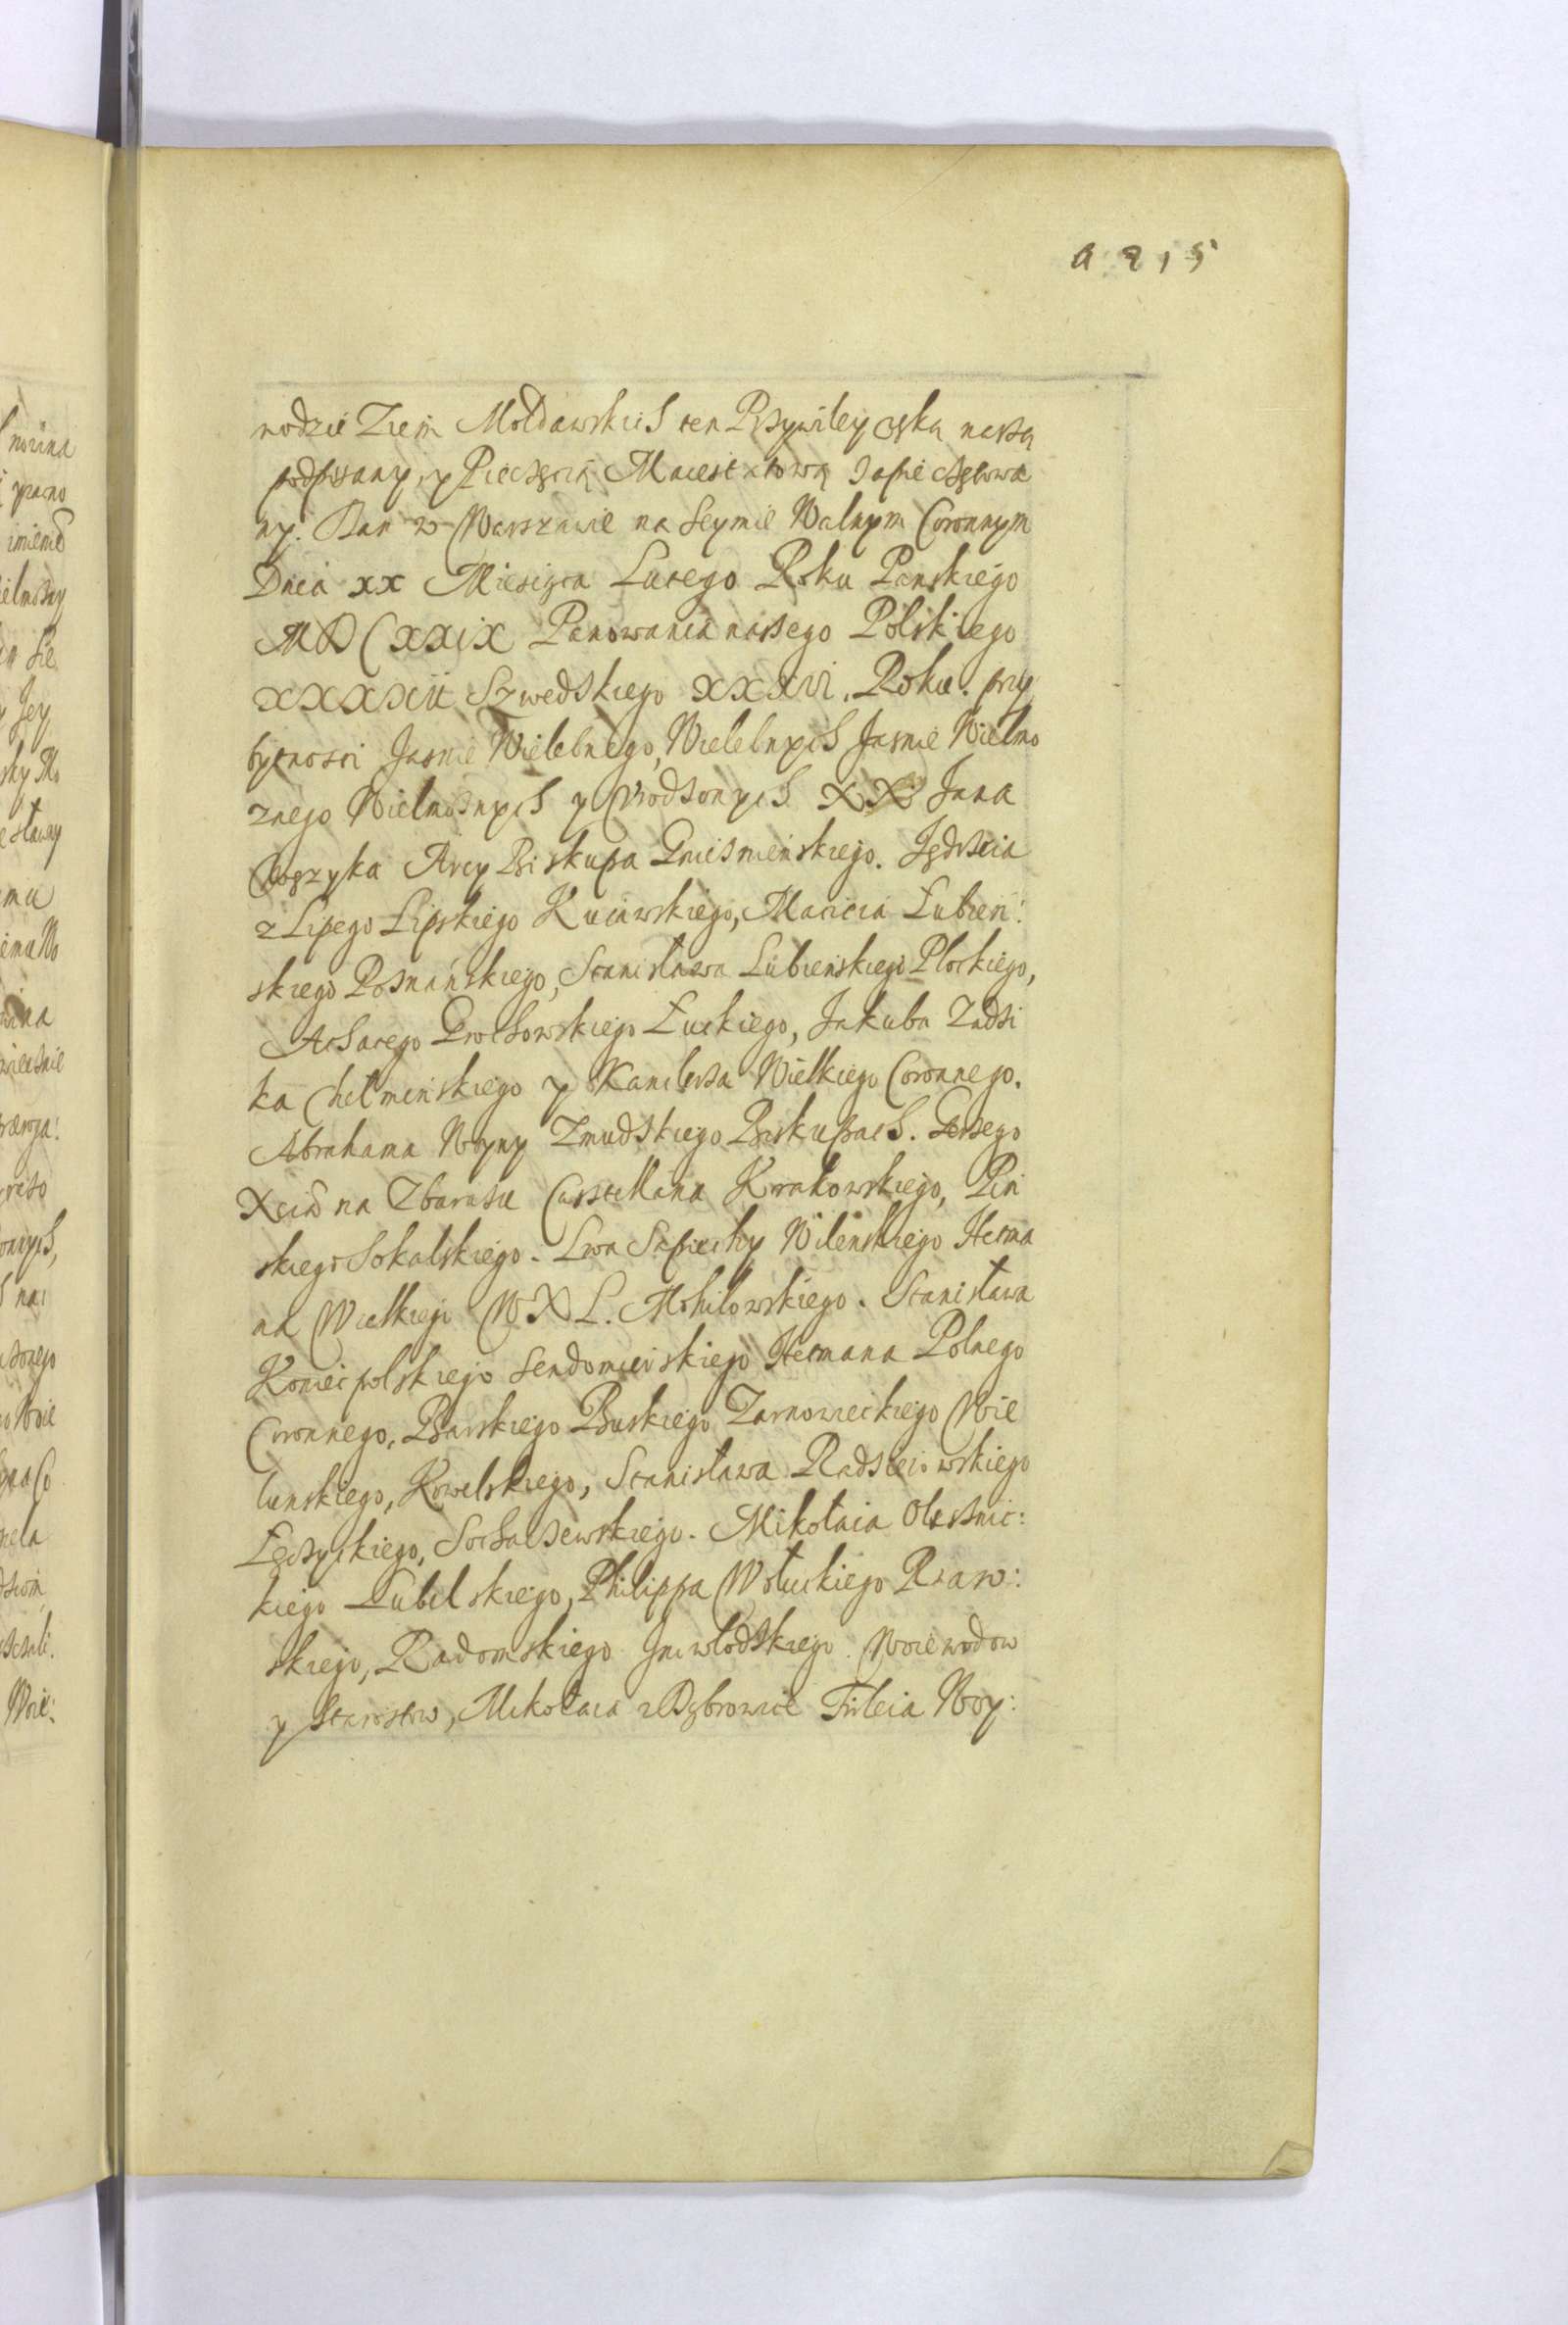 a 215
wodzie Ziem Mołdawskich ten Przywiley ręką naszą
podpisany, y Pieczęcią Maiestatową zapieczętowa
ny. Dan w Warszawie na Seymie Walnym Coronnym
Dnia xx Miesiąca Lutego Roku Panskiego
MDCXXIX Panowania naszego Polskiego
XXXXII Szwedskiego XXXVI. Roku. przy
bytnosci Jasnie Wielebnego, Wielebnych Jasnie Wielmo
znego Wielmoznych y Vrodzonych XX Jana
Wężyka Arcy Biskupa Gnieźnieńskiego. Jędrzeia
z Lipego Lipskiego Kuiawskiego, Macieia Łubień:
skiego Poznańskiego, Stanisława Łubieńskiego Plockiego,
Achacego Grochowskiego Łuckiego, Jakuba Zadzi
ka Chełmińskiego y Kanclerza Wielkiego Coronnego.
Abrahama Woyny Zmudzkiego Biskupach. Jerzego
Xcia na Zbarażu Casztellana Krakowskiego, Pin
skiego Sokalskiego. Lwa Sapiechy Wileńskiego Hetma
na Wielkiego W X L. Mohilowskiego. Stanisława
Koniecpolskiego Sendomirskiego Hetmana Polnego
Coronnego, Barskiego Buskiego Zarnowieckiego Wie
lunskiego, Kowelskiego, Stanisława Radzieiowskiego
Łęczyckiego, Sochaczewskiego. Mikołaia Olesznic:
kiego Lubelskiego, Philippa Wołuckiego Raw:
skiego, Radomskiego Inowłodzkiego. Woiewodow
y Starostow, Mikołaia z Dąbrowice Firleia Woy: